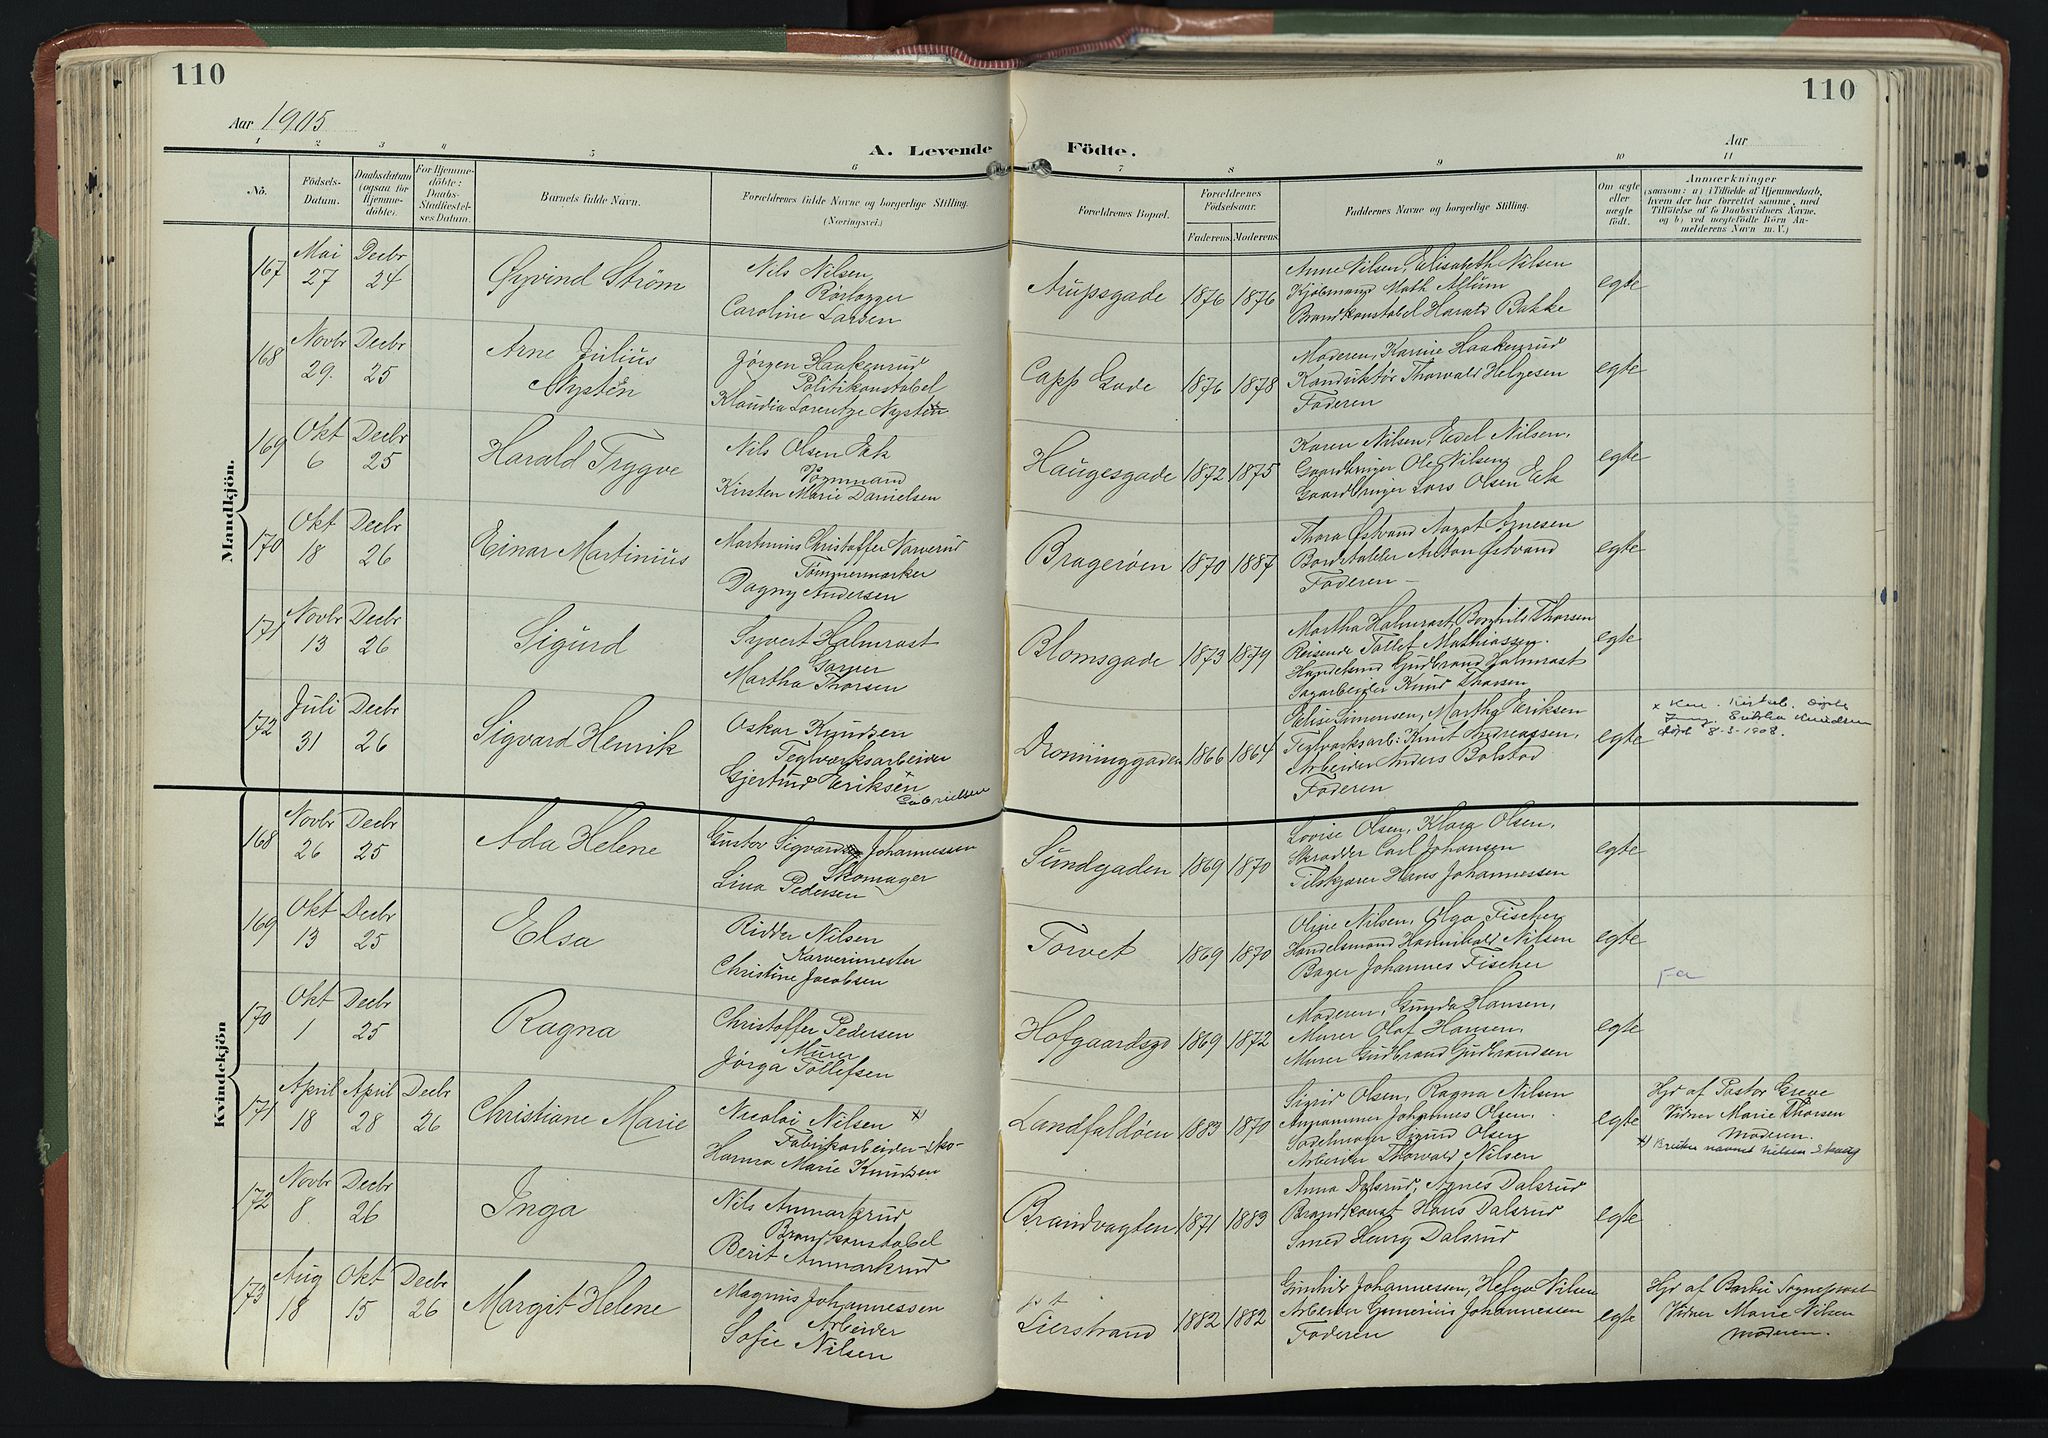 110
110
Aar 1905
Aar
A. Levende Födte.
1 2 3 4 5 6 7 8 9 10 11
No.
Födsels-
Datum.
Daabsdatum
(ogsaa for
Hjemme-
döbte).
For Hjemme-
döbte:
Daabs-
Stadfæstel-
ses Datum.
Barnets fulde Navn.
Forældrenes fulde Navne og borgerlige Stilling.
(Næringsvei.)
Forældrenes Bopæl.
Forældrenes
Födselsaar.
Faderens Moderens
Faddernes Navne og borgerlige Stilling.
Om ægte
eller
uægte
födt.
Anmærkninger
(saasom: a) i Tilfælde af Hjemmedaab,
hvem der har forrettet samme, med
Tilföielse af to Daabsvidners Navne,
og b) ved uægtefödte Börn An-
melderens Navn m. V.)
Mandkjön.
167
Mai
27
Decbr
24
Øyvind Ström
Nils Nilsen,
Rörlægger
Caroline Larsen
Arupsgade
1876 1876
Anne Nilsen, Elisabeth Nilsen
Kjöbmand Math Altum
Brandkonstabel Harald Bakke
egte
168
Novbr
29.
Decbr
25
Arne Julius
Nystén
Jörgen Haakenrud
Politikonstabel
Klaudia Lorentze Nystén
Capp Gade
1876 1878
Moderen, Karine Haakenrud
Konduktör Thorvald Helgesen
Faderen
egte
169
Okt
6
Decbr
25
Harald Trygve
Nils Olsen Eek
Bymand
Kirsten Marie Danielsen
Haugesgade
1872 1875
Karen Nilsen, Edel Nilsen,
Gaardbruger Ole Nilsen,
Gaardbruger Lars Olsen Eek
egte
170
Okt
18
Decbr
26
Einar Martinius
Martinius Christoffer Narverud
Tömmermærker
Dagny Andersen
Bragerøen
1870 1887
Thora Østvand Aagot Arnesen
Bordstabler Anton Østvand
Faderen –
egte
171
Novbr
13
Decbr
26
Sigurd
Syvert Halmrast
Garver
Martha Thorsen
Blomsgade
1873 1879
Martha Halmrast, Borghild Thorsen
Reisende Tollef Mathiassen.
Handelsmd Gudbrand Halmrast
Sagarbeider Knud Thorsen
egte
172
Juli
31
Decbr
26
Sigvard Henrik
Oskar Knudsen
Teglværksarbeider
Gjertrud Eriksen x
Gabrielsen
Dronninggaden
1866 1864
Elise Simonsen, Marthe Eriksen
Teglværksarb: Knut Andreassen,
Arbeider Anders Bolstad
Faderen
egte
8-3-1908.
Kvindekjön
168
Novbr
26
Decbr
25
Ada Helene
Gustav Sigvard Johannessen
Skomager
Lina Pedersen
Sundgaden
1869 1870
Lovise Olsen, Klara Olsen,
Skrædder Carl Johansen
Tilskjærer Hans Johannessen
egte
169
Okt
13
Decbr
25
Elsa
Ridder Nilsen
Karverimester
Christine Jacobsen
Torvet
1869 1870
Oline Nilsen, Olga Fischer
Handelsmand Hannibald Nilsen
Bager Johannes Fischer
egte
Fa
170
Okt
1
Decbr
25
Ragna
Christoffer Pedersen
Murer
Jörga Tollefsen
Hofgaardsgd
1869 1872
Moderen, Gunda Hansen,
Murer Olaf Hansen,
Murer Gudbrand Gudbrandsen
egte
171
April
18
April
28
Decbr
26
Christiane Marie
Nicolai Nilsen x)
Fabrikarbeider - Sko-
Hanna Marie Knudsen
Landfaldøen
1883 1870
Sigrid Olsen, Ragna Nilsen
Johannes Olsen.
Sadelmager Sigurd Olsen
Arbeider Thorvald Nilsen
egte
Hjd af Pastor Greve
Vidner Marie Thorsen
Moderen.
x) Bruker navnet Nilsen Skaug
172
Novbr
8
Decbr
26
Inga
Nils Anmarkrud
Brandkonstabel
Berit Anmarkrud
Brandvagten
1871 1883
Anna Dalsrud, Agnes Dalsrud
Brandkonst Hans Dalsrud
Smed Henry Dalsrud
egte
173
Aug
18
Okt
15
Decbr
26
Margit Helene
Magnus Johannessen
Arbeider
Sofie Nilsen
Lierstrand
1882 1882
Gunhild Johannessen, Helga Nilsen
Arbeider Gunerius Johannessen
Faderen
egte
Hjd af
Vidner Marie Nilsen
Moderen.